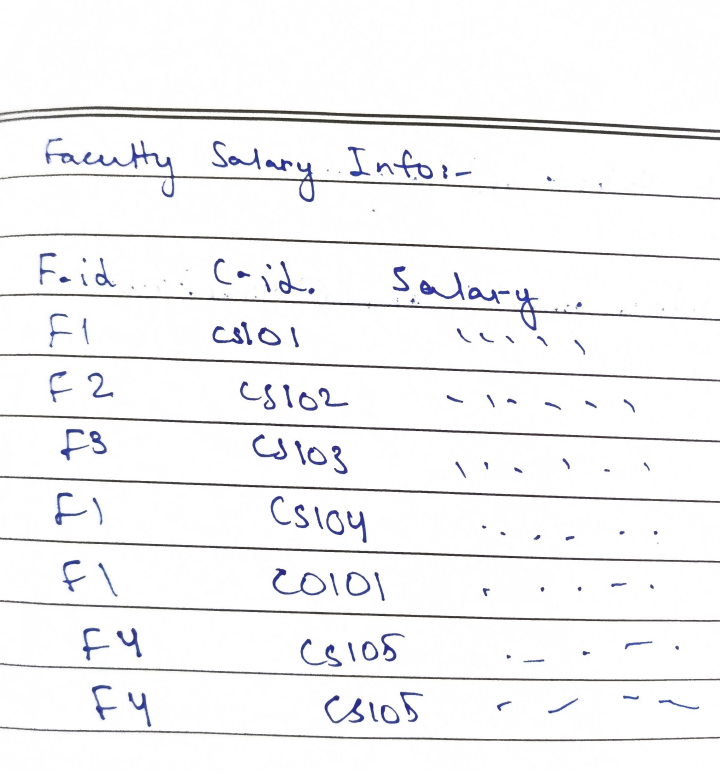 Faculty Salary Info:-
F-id C-id. Salary
F1 CS101
F2 CS102
F3 CS103
F1 CS104
F1 CO101
F4 CS105
F4 CS105